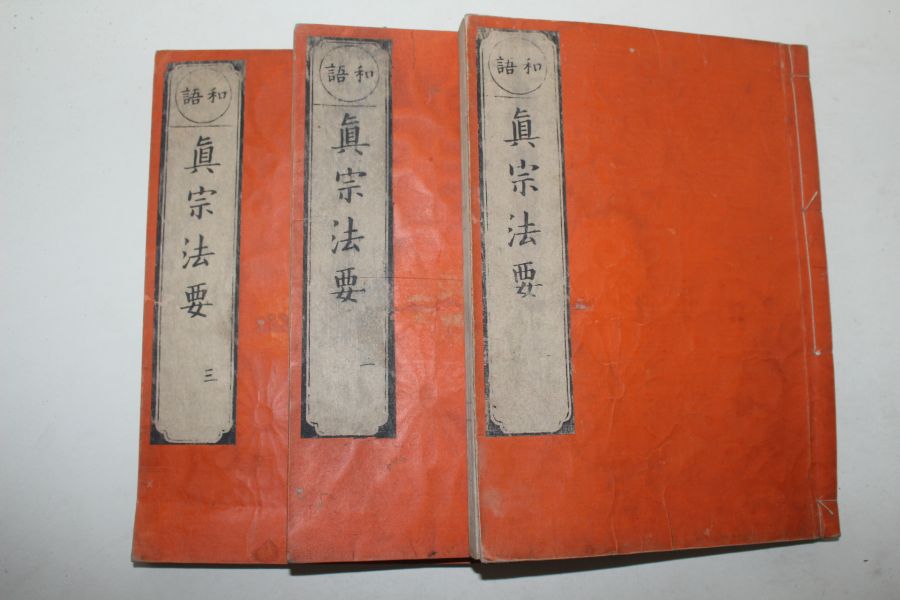 和語
眞宗法要
和語
眞宗法要
一
和語
眞宗法要
三